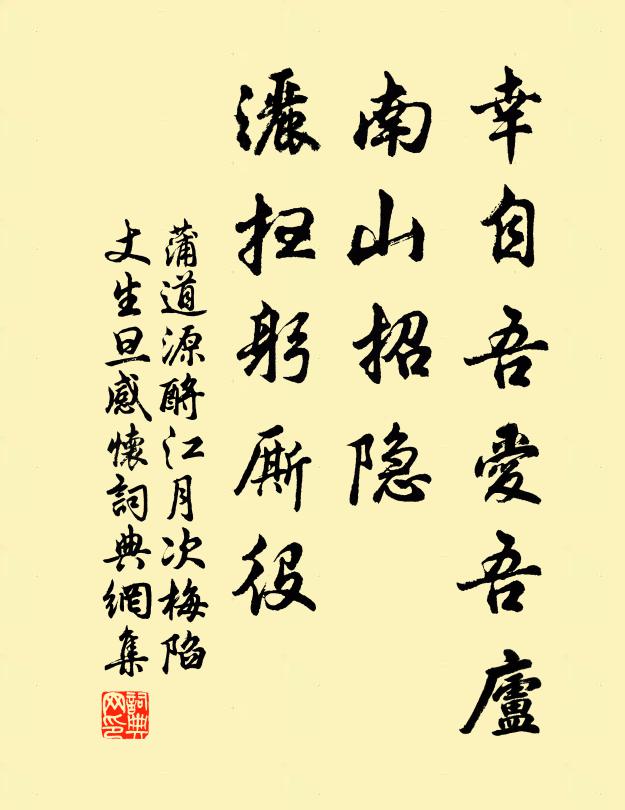 幸自吾愛吾廬
南山招隐
灑扫躬厮役
蒲道源酹江月次梅陷
丈生旦感懷詞典網集
詞典
网印